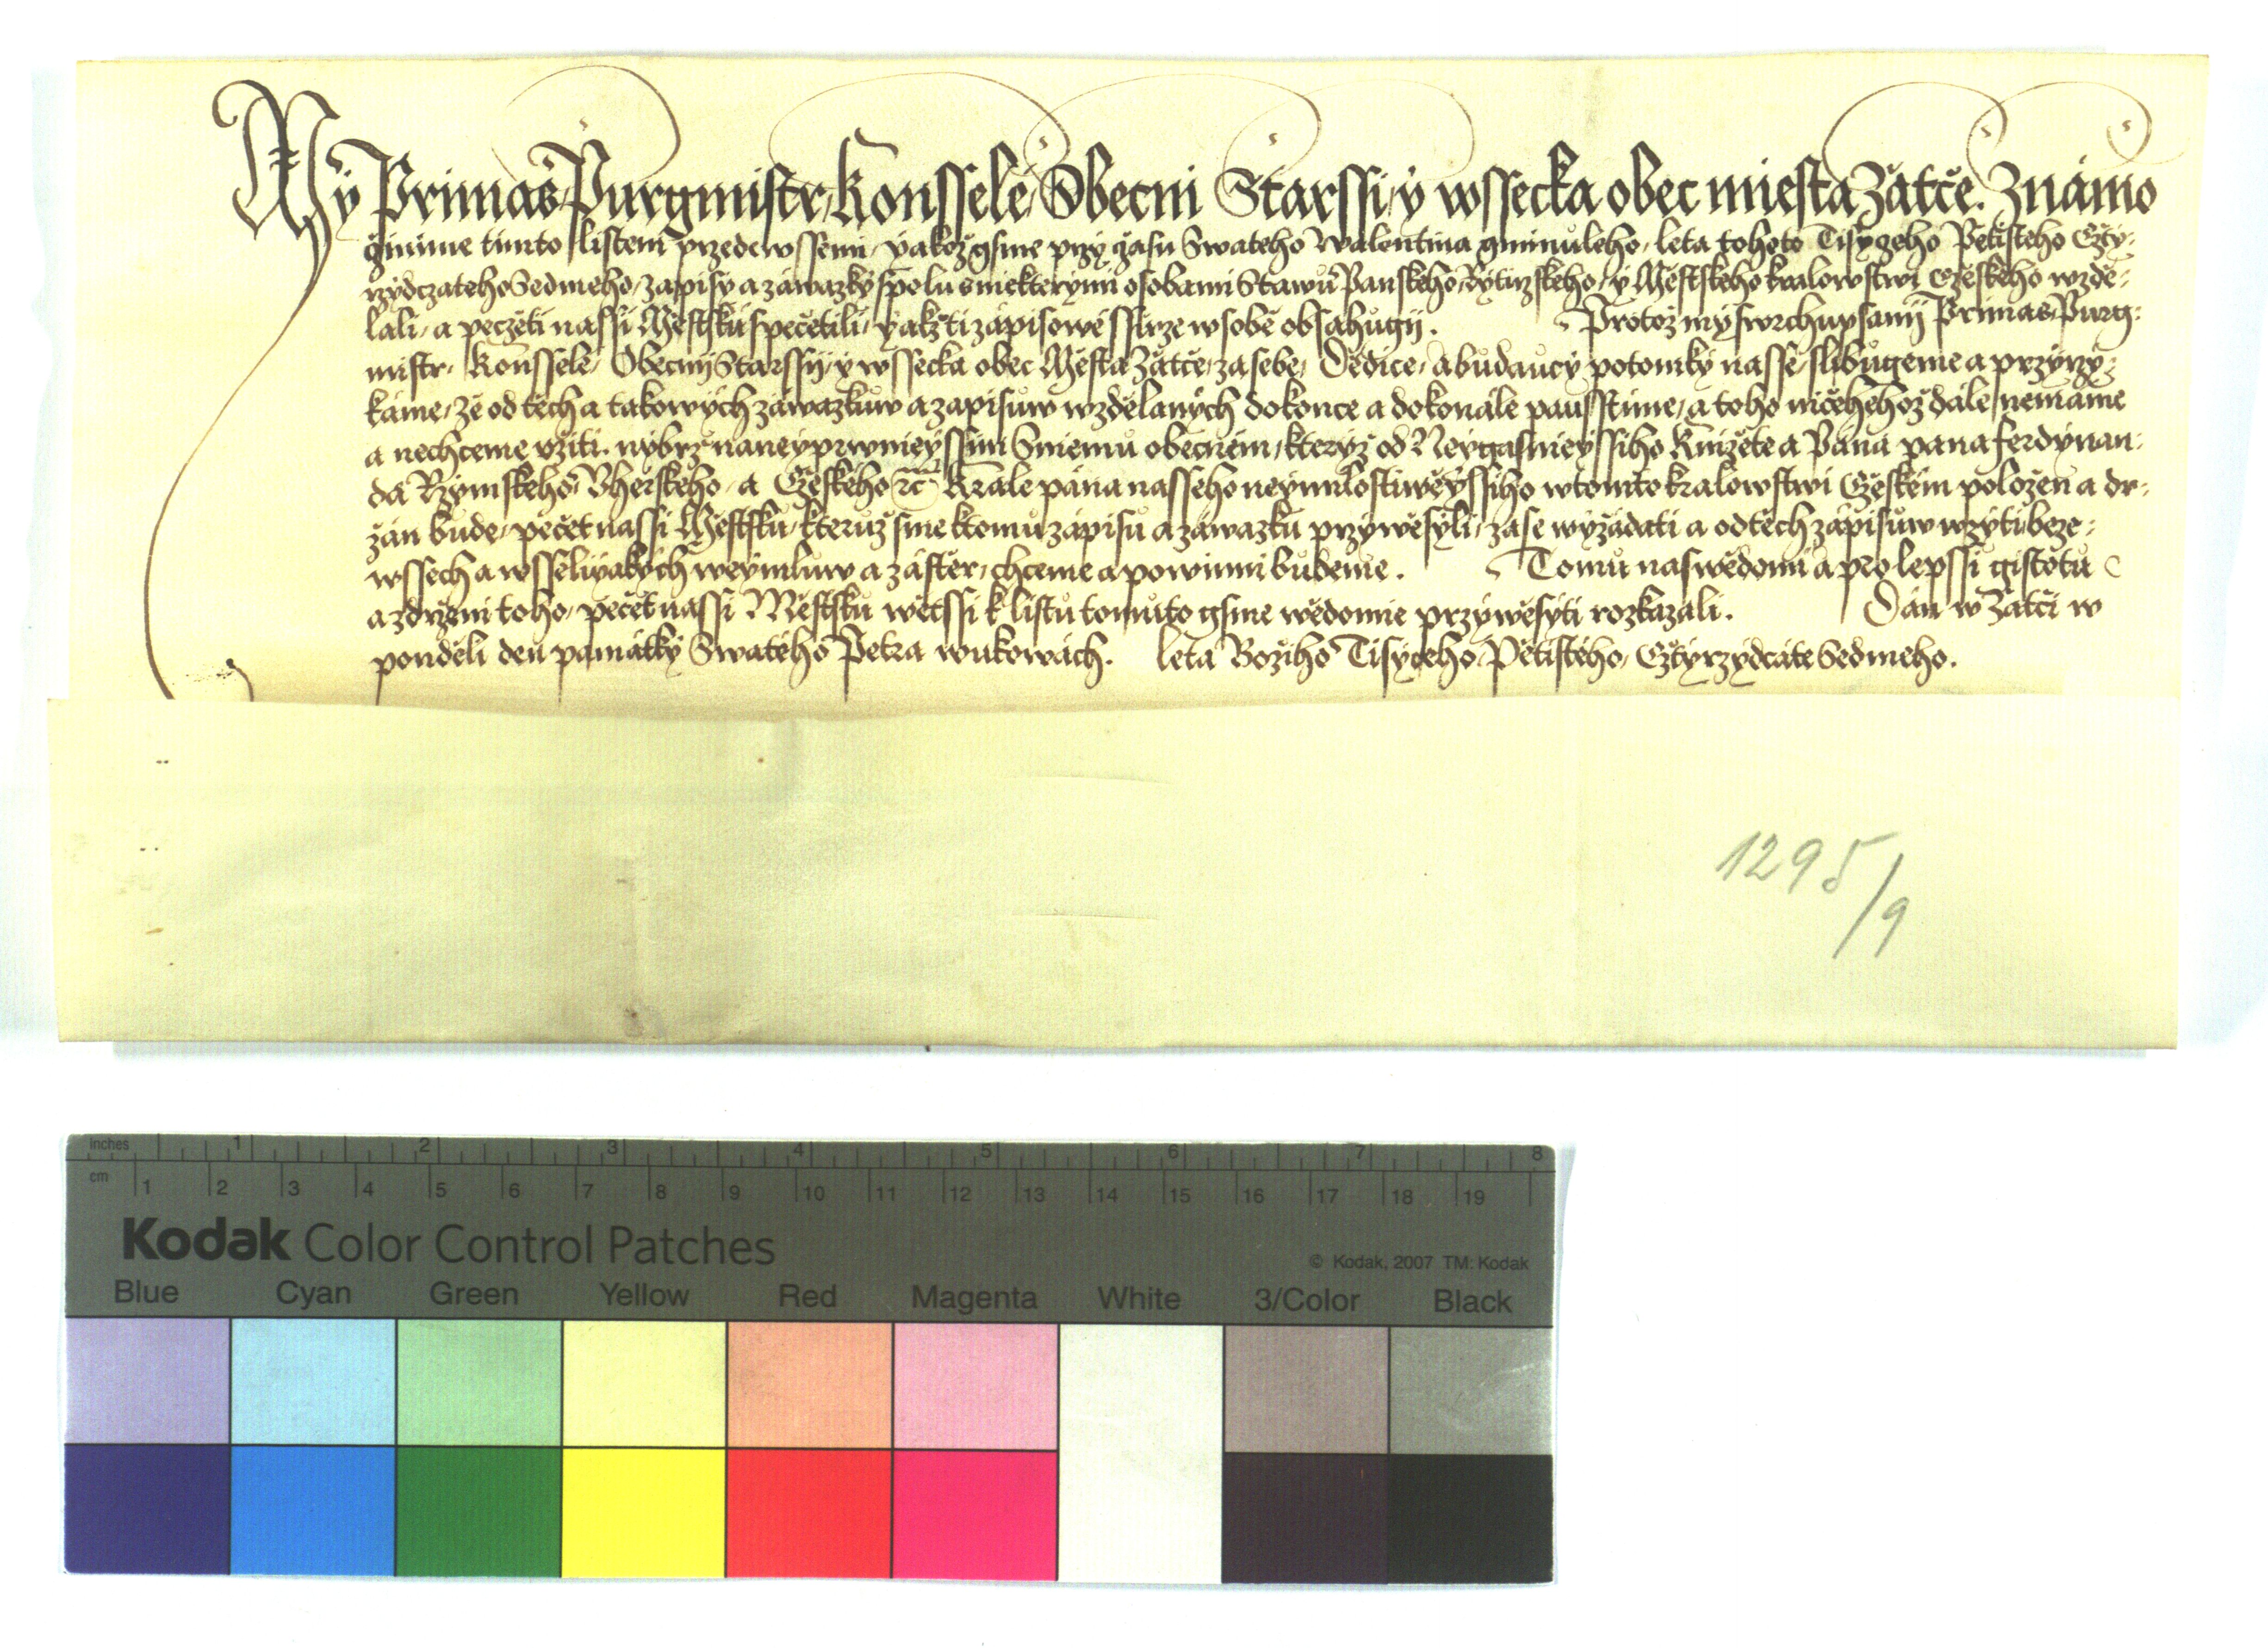 My Primas Purgmistr, Konssele, Obecni Starssi, y wssecka obec miesta Zatče. Známo
čznime tiimto listem przedewssemi, yakož gsme przy čzasu Swateho Walentina gminuleho, leta tohoto Tisyczeho Pětisteho Czty-
rzydczateho Sedmeho, zapisy a záwazky spolu s niekterymi osobami Stawů Panskeho, Rytirzskeho, y Městskeho kralowstwi Czeskeho wzdě-
lali, a peczěti nassi Městskú spečetili, yakž ti zápisowé ssirze w sobě obsahugij. Protož my swrchupsanij Primas, Purg-
mistr, Konssele, Obecnij Starssij, y wssecka obec Města Zatče, za sebe, Dědice, a budaucy potomky nasse, slibugeme a przyrzy-
káme, že od těch a takowých záwazkuw a zapisuw wzdělaných dokonce a dokonále paustime, a toho ničehehož dále nemáme
a nechceme užiti. nýbrž na neyprwnieyssim Sniemu obecném, kterýž od Neygasnieyssiho Knižete a Pána pana Ferdynan-
da Rzymskeho, Uherskeho, a Czeskeho ꝛc̄ Krále pána nasseho neymilostiwěyssiho w tomto kralowstwi Czeském položen a dr-
žán bude, pečet nassi Městsku, kteruž sme k tomu zápisu a záwazku przywěsyli, zase wyžádati a od těch zápisuw wzyti beze-
wssech a wsselyakých weymluw a zástěr, chceme a powinni budeme. Tomu na swědomi a pro lepssi gistotu
a zdrženi toho, pečet nassi Městsku wětssi k listu tomuto gsme wědomie przywěsyti rozkazali. Dán w Žatči w
ponděli den památky Swatého Petra w ukowách. leta Božiho Tisyceho, Pětistého, Cztyrzydcáte Sedmeho.
1295/9
inches 1 2 3 4 5 6 7 8
cm 1 2 3 4 5 6 7 8 9 10 11 12 13 14 15 16 17 18 19
Kodak Color Control Patches
© Kodak, 2007 TM: Kodak
Blue Cyan Green Yellow Red Magenta White 3/Color Black